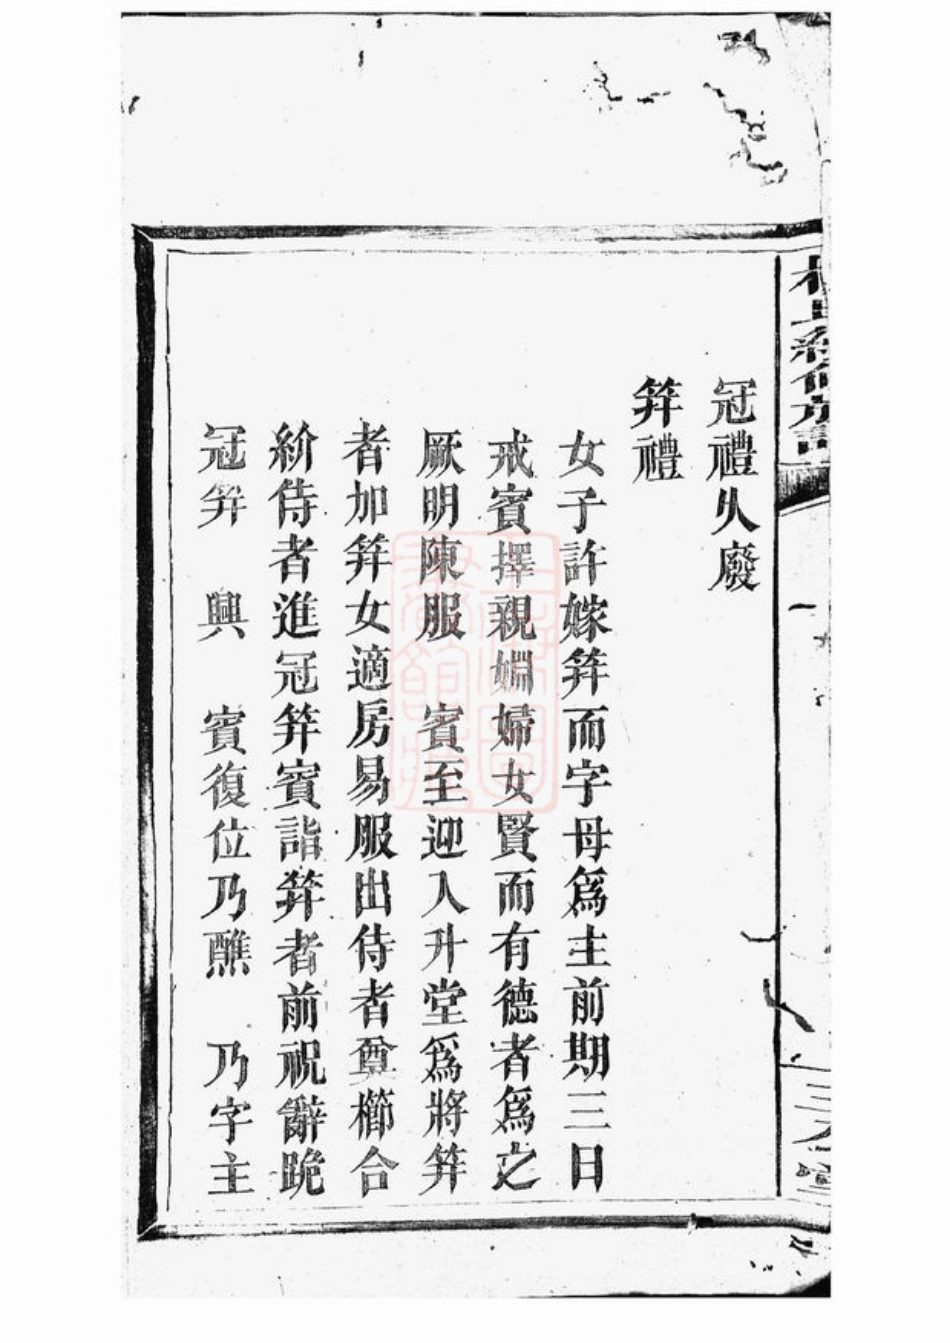 冠禮久廢
笄禮
女子許嫁笄而字母爲主前期三日
戒賓擇親婣婦女賢而有德者爲之
厥明陳服　賓至迎入升堂爲將笄
者加笄女適房易服出侍者奠櫛合
紒侍者進冠笄賓詣笄者前祝辭跪
冠笄　興　賓復位乃醮　乃字主